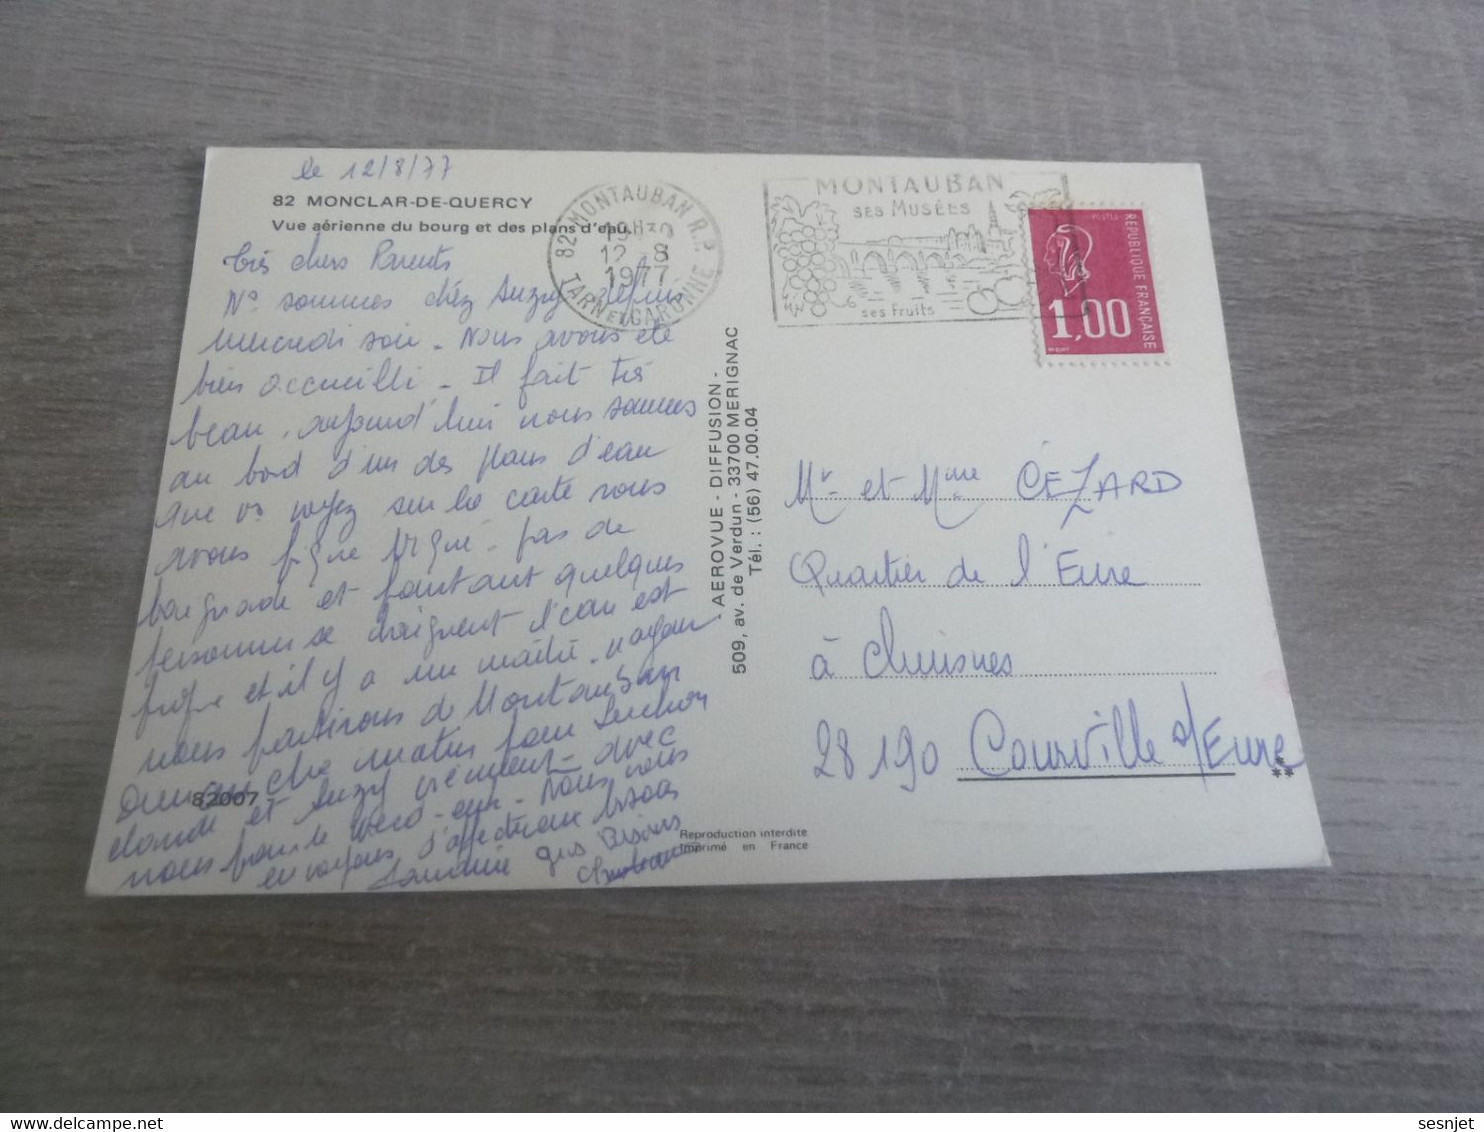 le 12/8/77
82 MONCLAR-DE-QUERCY
Vue aérienne du bourg et des plans d'eau.
très chers Parents
Ns sommes chez Suzy depuis
mercredi soir - Nous avons été
bien accueilli - Il fait très
beau, aujourd'hui nous sommes
au bord d'un des plans d'eau
que vs voyez sur la carte nous
avons pique niqué - pas de
baignade et pourtant quelques
personnes se baignent l'eau est
propre et il y a un maître nageur
nous partirons de Montauban
dimanche matin pour Luchon
Claude et Suzy viennent avec
nous pour le week-end - Nous vous
envoyons d'affectueux bisous
gros Bisous
82007
82 MONTAUBAN R.P.
19H30
12 - 8
1977
TARN ET GARONNE
MONTAUBAN
SES MUSÉES
ses Fruits
POSTES
RÉPUBLIQUE FRANÇAISE
1,00
- AEROVUE - DIFFUSION -
509, av. de Verdun - 33700 MERIGNAC
Tél. : (56) 47.00.04
Mr et Mme CÉZARD
Quartier de l'Eure
à Chuisnes
28190 Courville s/Eure
Reproduction interdite
Imprimé en France
sesnjet